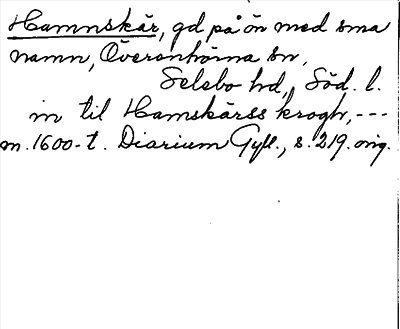 Hamnskär, gd på ön med sma
namn, Överenhörna sn,
Selebo hd, Söd. l.
in til Hamskärss krogh, ---
m. 1600-t. Diarium Gyll., s. 219. orig.